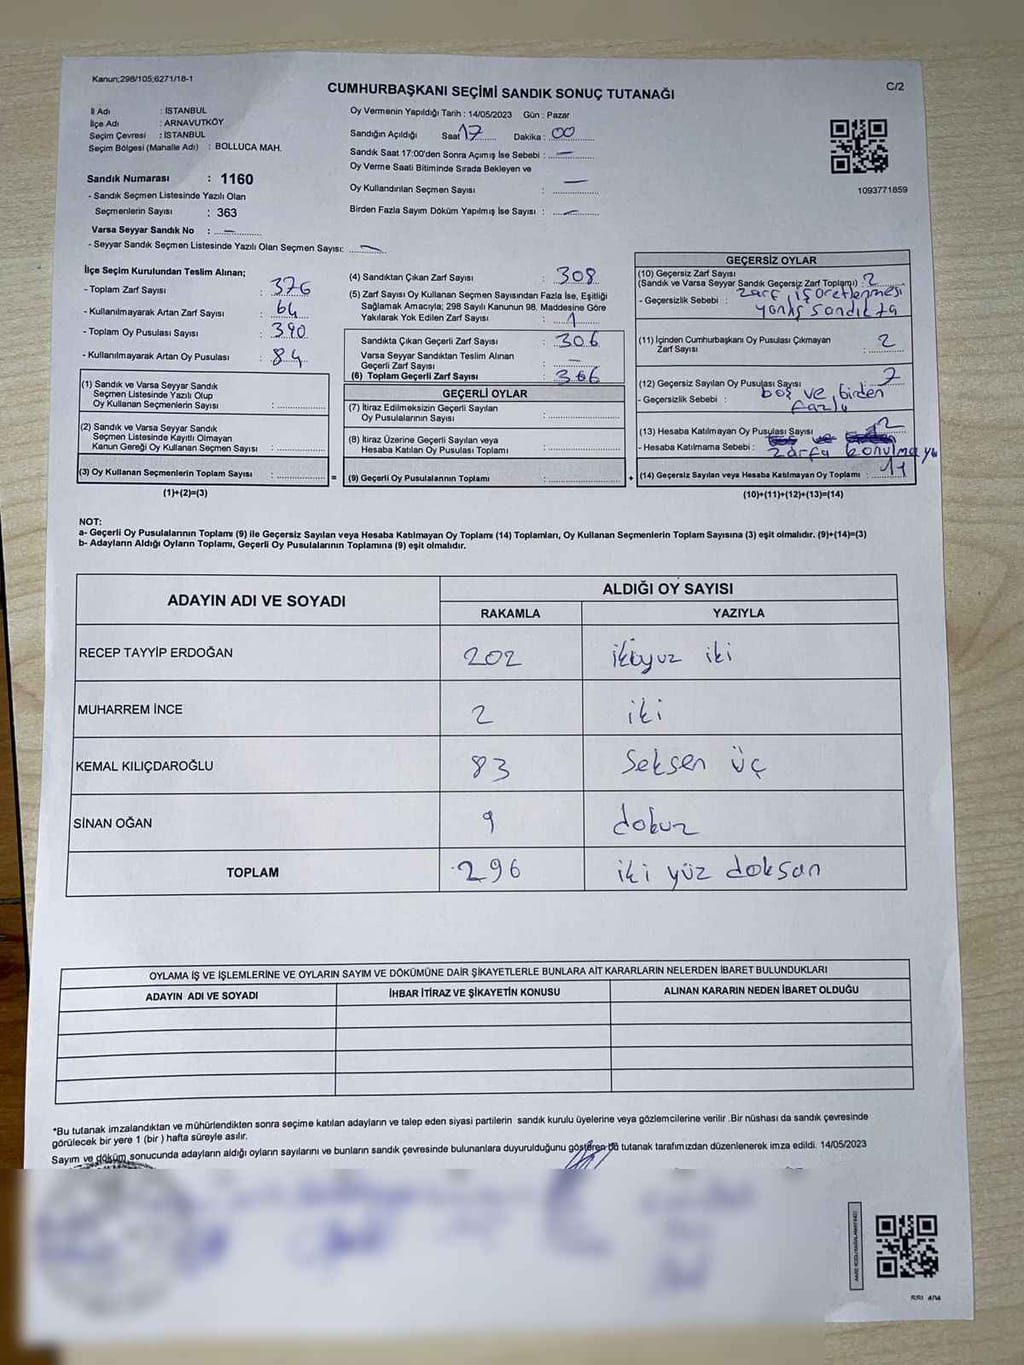 Kanun;298/105;6271/18-1
CUMHURBAŞKANI SEÇİMİ SANDIK SONUÇ TUTANAĞI
C/2
İl Adı : İSTANBUL
İlçe Adı : ARNAVUTKÖY
Seçim Çevresi : İSTANBUL
Seçim Bölgesi (Mahalle Adı) : BOLLUCA MAH.
Sandık Numarası : 1160
- Sandık Seçmen Listesinde Yazılı Olan
Seçmenlerin Sayısı : 363
Varsa Seyyar Sandık No : —
- Seyyar Sandık Seçmen Listesinde Yazılı Olan Seçmen Sayısı: —
Oy Vermenin Yapıldığı Tarih : 14/05/2023 Gün : Pazar
Sandığın Açıldığı Saat 17 Dakika : 00
Sandık Saat 17:00'den Sonra Açımış İse Sebebi : —
Oy Verme Saati Bitiminde Sırada Bekleyen ve
Oy Kullandırılan Seçmen Sayısı : —
Birden Fazla Sayım Döküm Yapılmış İse Sayısı : —
1093771859
İlçe Seçim Kurulundan Teslim Alınan;
- Toplam Zarf Sayısı : 376
- Kullanılmayarak Artan Zarf Sayısı : 64
- Toplam Oy Pusulası Sayısı : 390
- Kullanılmayarak Artan Oy Pusulası : 84
(1) Sandık ve Varsa Seyyar Sandık
Seçmen Listesinde Yazılı Olup
Oy Kullanan Seçmenlerin Sayısı :
(2) Sandık ve Varsa Seyyar Sandık
Seçmen Listesinde Kayıtlı Olmayan
Kanun Gereği Oy Kullanan Seçmen Sayısı :
(3) Oy Kullanan Seçmenlerin Toplam Sayısı :
(1)+(2)=(3)
(4) Sandıktan Çıkan Zarf Sayısı : 308
(5) Zarf Sayısı Oy Kullanan Seçmen Sayısından Fazla İse, Eşitliği
Sağlamak Amacıyla; 298 Sayılı Kanunun 98. Maddesine Göre
Yakılarak Yok Edilen Zarf Sayısı : 1
Sandıkta Çıkan Geçerli Zarf Sayısı : 306
Varsa Seyyar Sandıktan Teslim Alınan
Geçerli Zarf Sayısı : —
(6) Toplam Geçerli Zarf Sayısı : 306
GEÇERLİ OYLAR
(7) İtiraz Edilmeksizin Geçerli Sayılan
Oy Pusulalarının Sayısı :
(8) İtiraz Üzerine Geçerli Sayılan veya
Hesaba Katılan Oy Pusulası Toplamı :
=
(9) Geçerli Oy Pusulalarının Toplamı :
+
GEÇERSİZ OYLAR
(10) Geçersiz Zarf Sayısı
(Sandık ve Varsa Seyyar Sandık Geçersiz Zarf Toplamı) : 2
- Geçersizlik Sebebi : zarf işaretlenmesi
yanlış sandıkta
(11) İçinden Cumhurbaşkanı Oy Pusulası Çıkmayan
Zarf Sayısı : 2
(12) Geçersiz Sayılan Oy Pusulası Sayısı : 7
- Geçersizlik Sebebi : boş ve birden
fazla
(13) Hesaba Katılmayan Oy Pusulası Sayısı : 2
- Hesaba Katılmama Sebebi : zarfa konulmayı
(14) Geçersiz Sayılan veya Hesaba Katılmayan Oy Toplamı : 11
(10)+(11)+(12)+(13)=(14)
NOT:
a- Geçerli Oy Pusulalarının Toplamı (9) ile Geçersiz Sayılan veya Hesaba Katılmayan Oy Toplamı (14) Toplamları, Oy Kullanan Seçmenlerin Toplam Sayısına (3) eşit olmalıdır. (9)+(14)=(3)
b- Adayların Aldığı Oyların Toplamı, Geçerli Oy Pusulalarının Toplamına (9) eşit olmalıdır.
ADAYIN ADI VE SOYADI
ALDIĞI OY SAYISI
RAKAMLA YAZIYLA
RECEP TAYYİP ERDOĞAN 202 ikiyuz iki
MUHARREM İNCE 2 iki
KEMAL KILIÇDAROĞLU 83 Seksen üç
SİNAN OĞAN 9 dokuz
TOPLAM 296 iki yüz doksan
OYLAMA İŞ VE İŞLEMLERİNE VE OYLARIN SAYIM VE DÖKÜMÜNE DAİR ŞİKAYETLERLE BUNLARA AİT KARARLARIN NELERDEN İBARET BULUNDUKLARI
ADAYIN ADI VE SOYADI İHBAR İTİRAZ VE ŞİKAYETİN KONUSU ALINAN KARARIN NEDEN İBARET OLDUĞU
*Bu tutanak imzalandıktan ve mühürlendikten sonra seçime katılan adayların ve talep eden siyasi partilerin sandık kurulu üyelerine veya gözlemcilerine verilir .Bir nüshası da sandık çevresinde
görülecek bir yere 1 (bir ) hafta süreyle asılır.
Sayım ve döküm sonucunda adayların aldığı oyların sayılarını ve bunların sandık çevresinde bulunanlara duyurulduğunu gösteren bu tutanak tarafımızdan düzenlenerek imza edildi. 14/05/2023